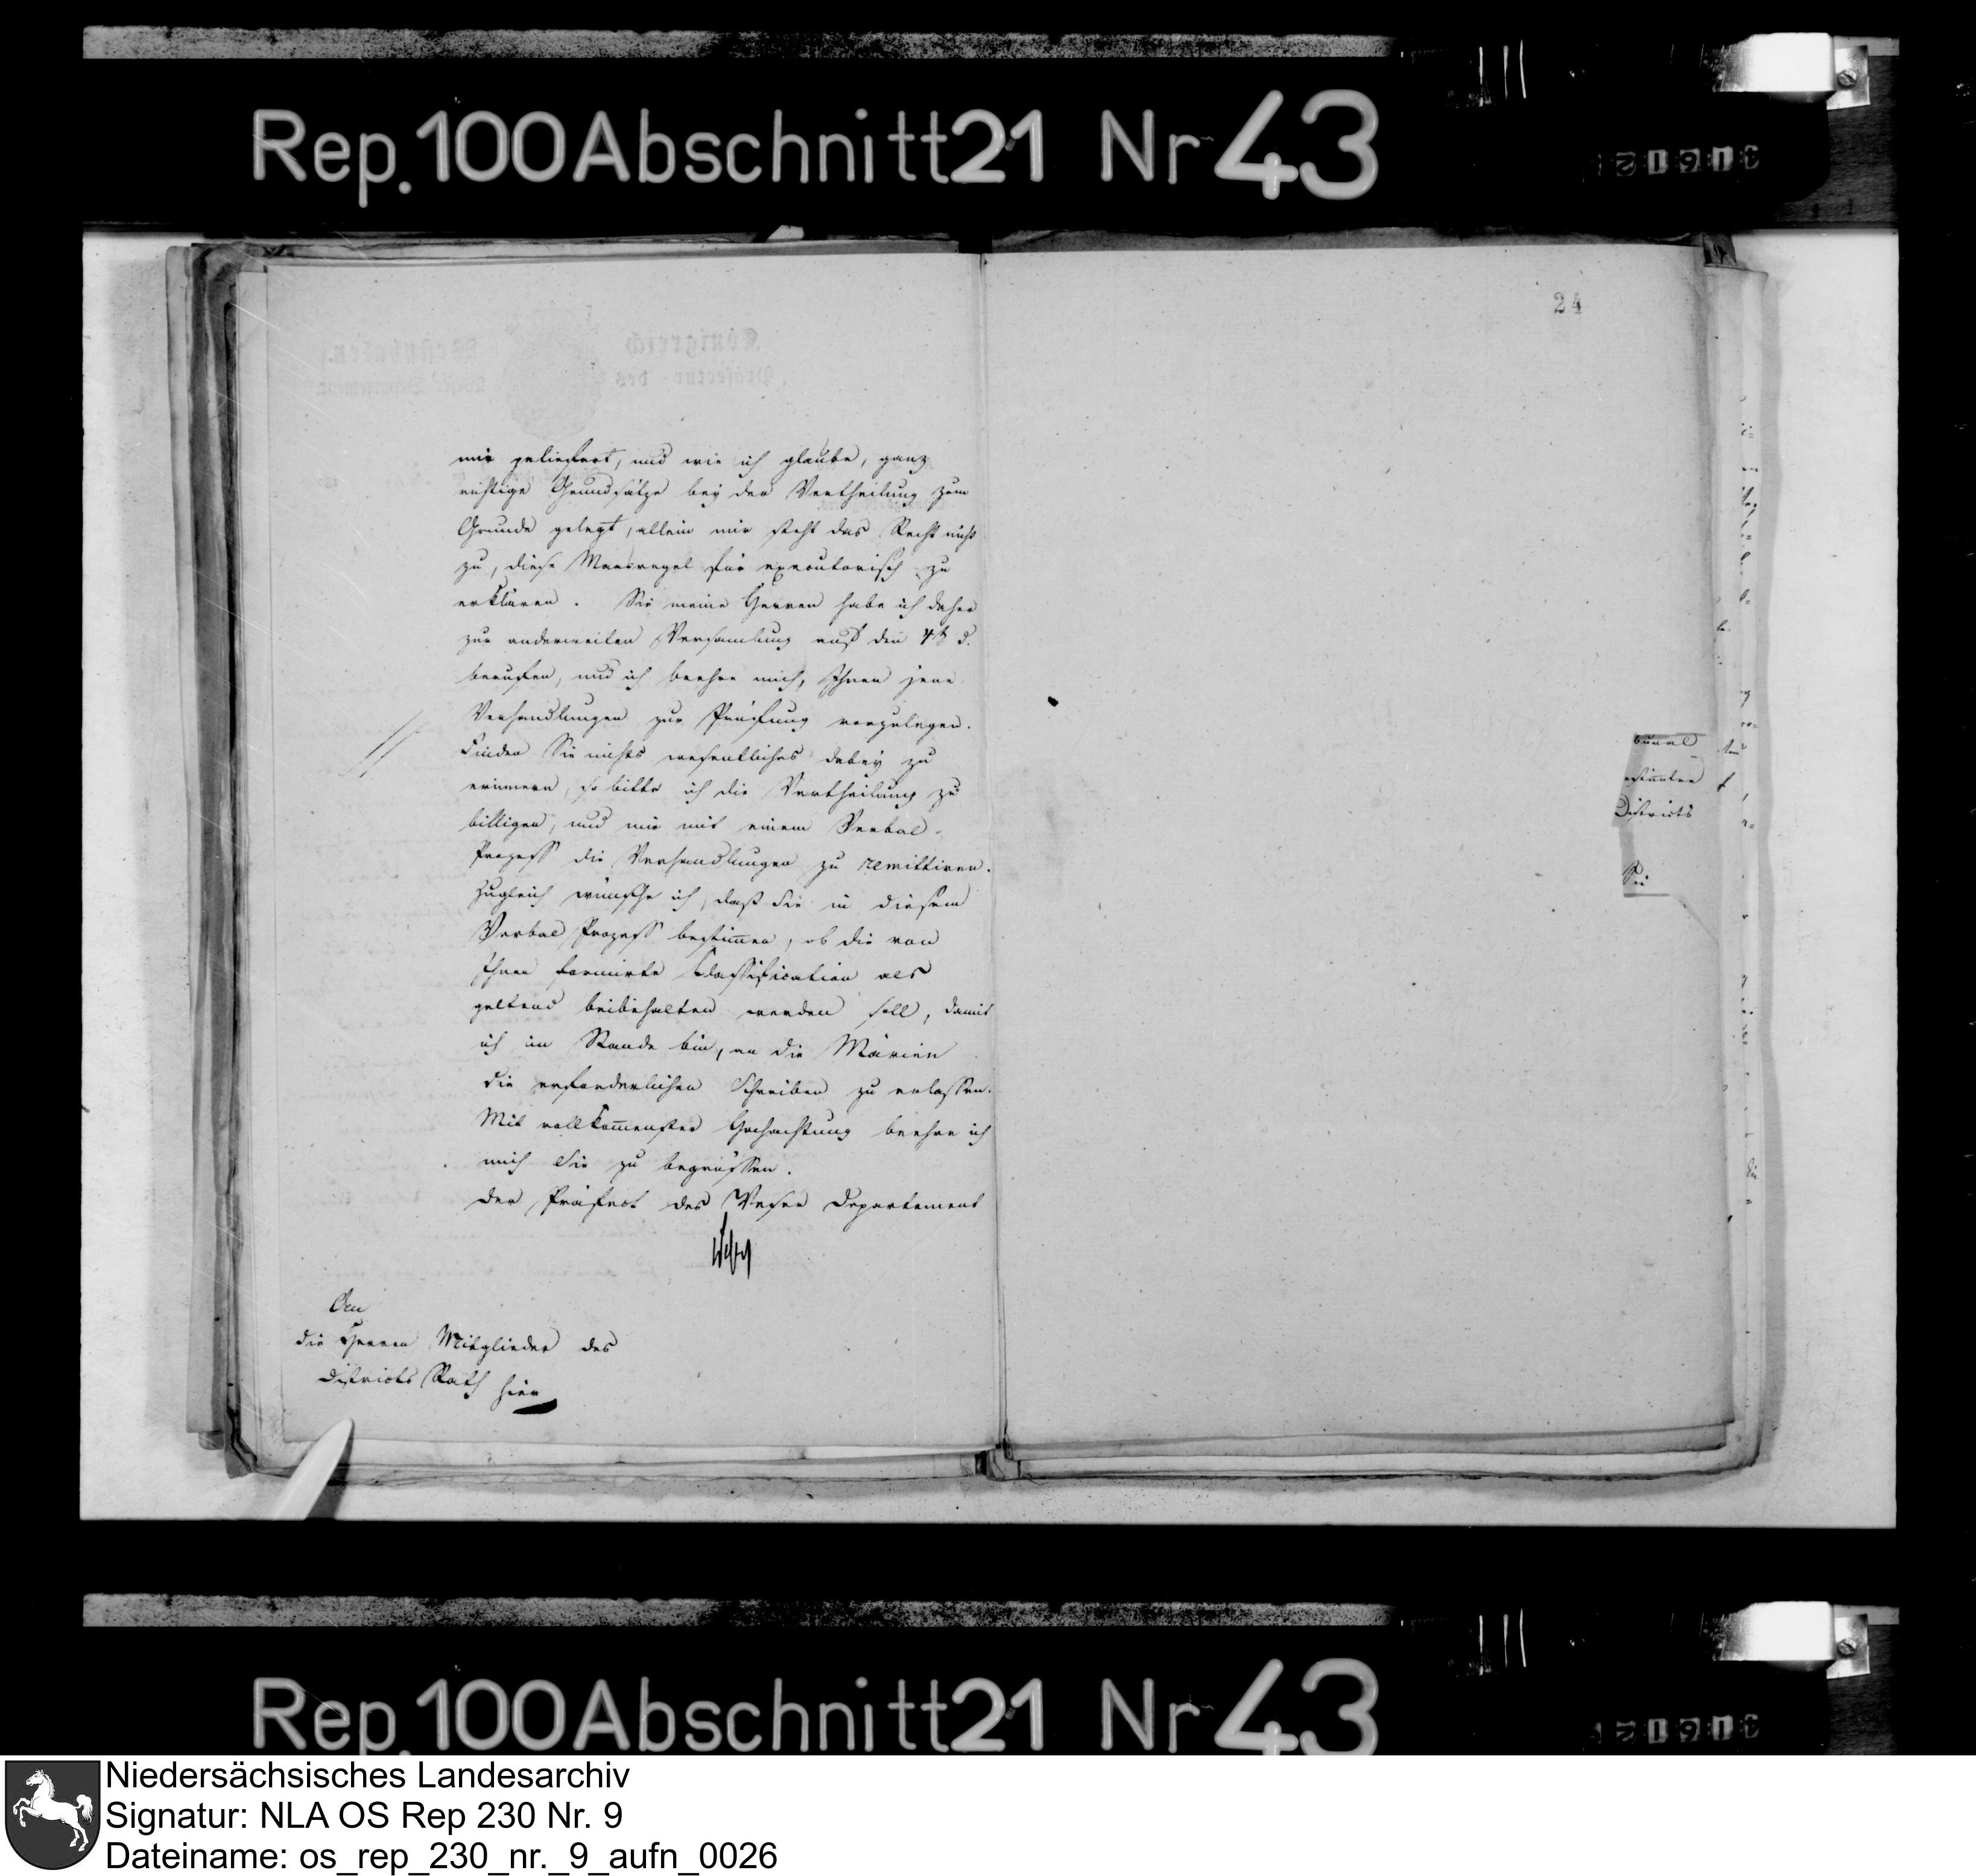 Rep. 100 Abschnitt 21 Nr 43
24
mir geliefert, und wie ich glaube, ganz
richtige Grundsätze bey der Vertheilung zum
Grunde gelegt, allein mir steht das Recht nicht
zu, diese Maasregel für executorisch zu
erklären. Sie meine Herren habe ich daher
zur anderweiten Versamlung auf den 4t d.
berufen, und ich beehre mich, Ihnen jene
Verhandlungen zur Prüfung vorzulegen.
Finden Sie nichts wesentliches dabey zu
erinnern, so bitte ich die Vertheilung zu
billigen, und mir mit einem Verbal-
Prozess die Verhandlungen zu remittiren.
Zugleich wünsche ich, daß Sie in diesem
Verbal Prozess bestimen, ob die von
Ihnen formirte Classification als
geltend beibehalten werden soll, damit
ich im Stande bin, an die Märien
die erforderlichen Schreiben zu erlassen.
Mit vollkomenster Hochachtung beehre ich
mich Sie zu begrüssen.
der Präfect des Weser Departement
An
die Herren Mitglieder des
Districts Rath hier
Districts
Sie
Rep. 100 Abschnitt 21 Nr 43
Niedersächsisches Landesarchiv
Signatur: NLA OS Rep 230 Nr. 9
Dateiname: os_rep_230_nr._9_aufn_0026